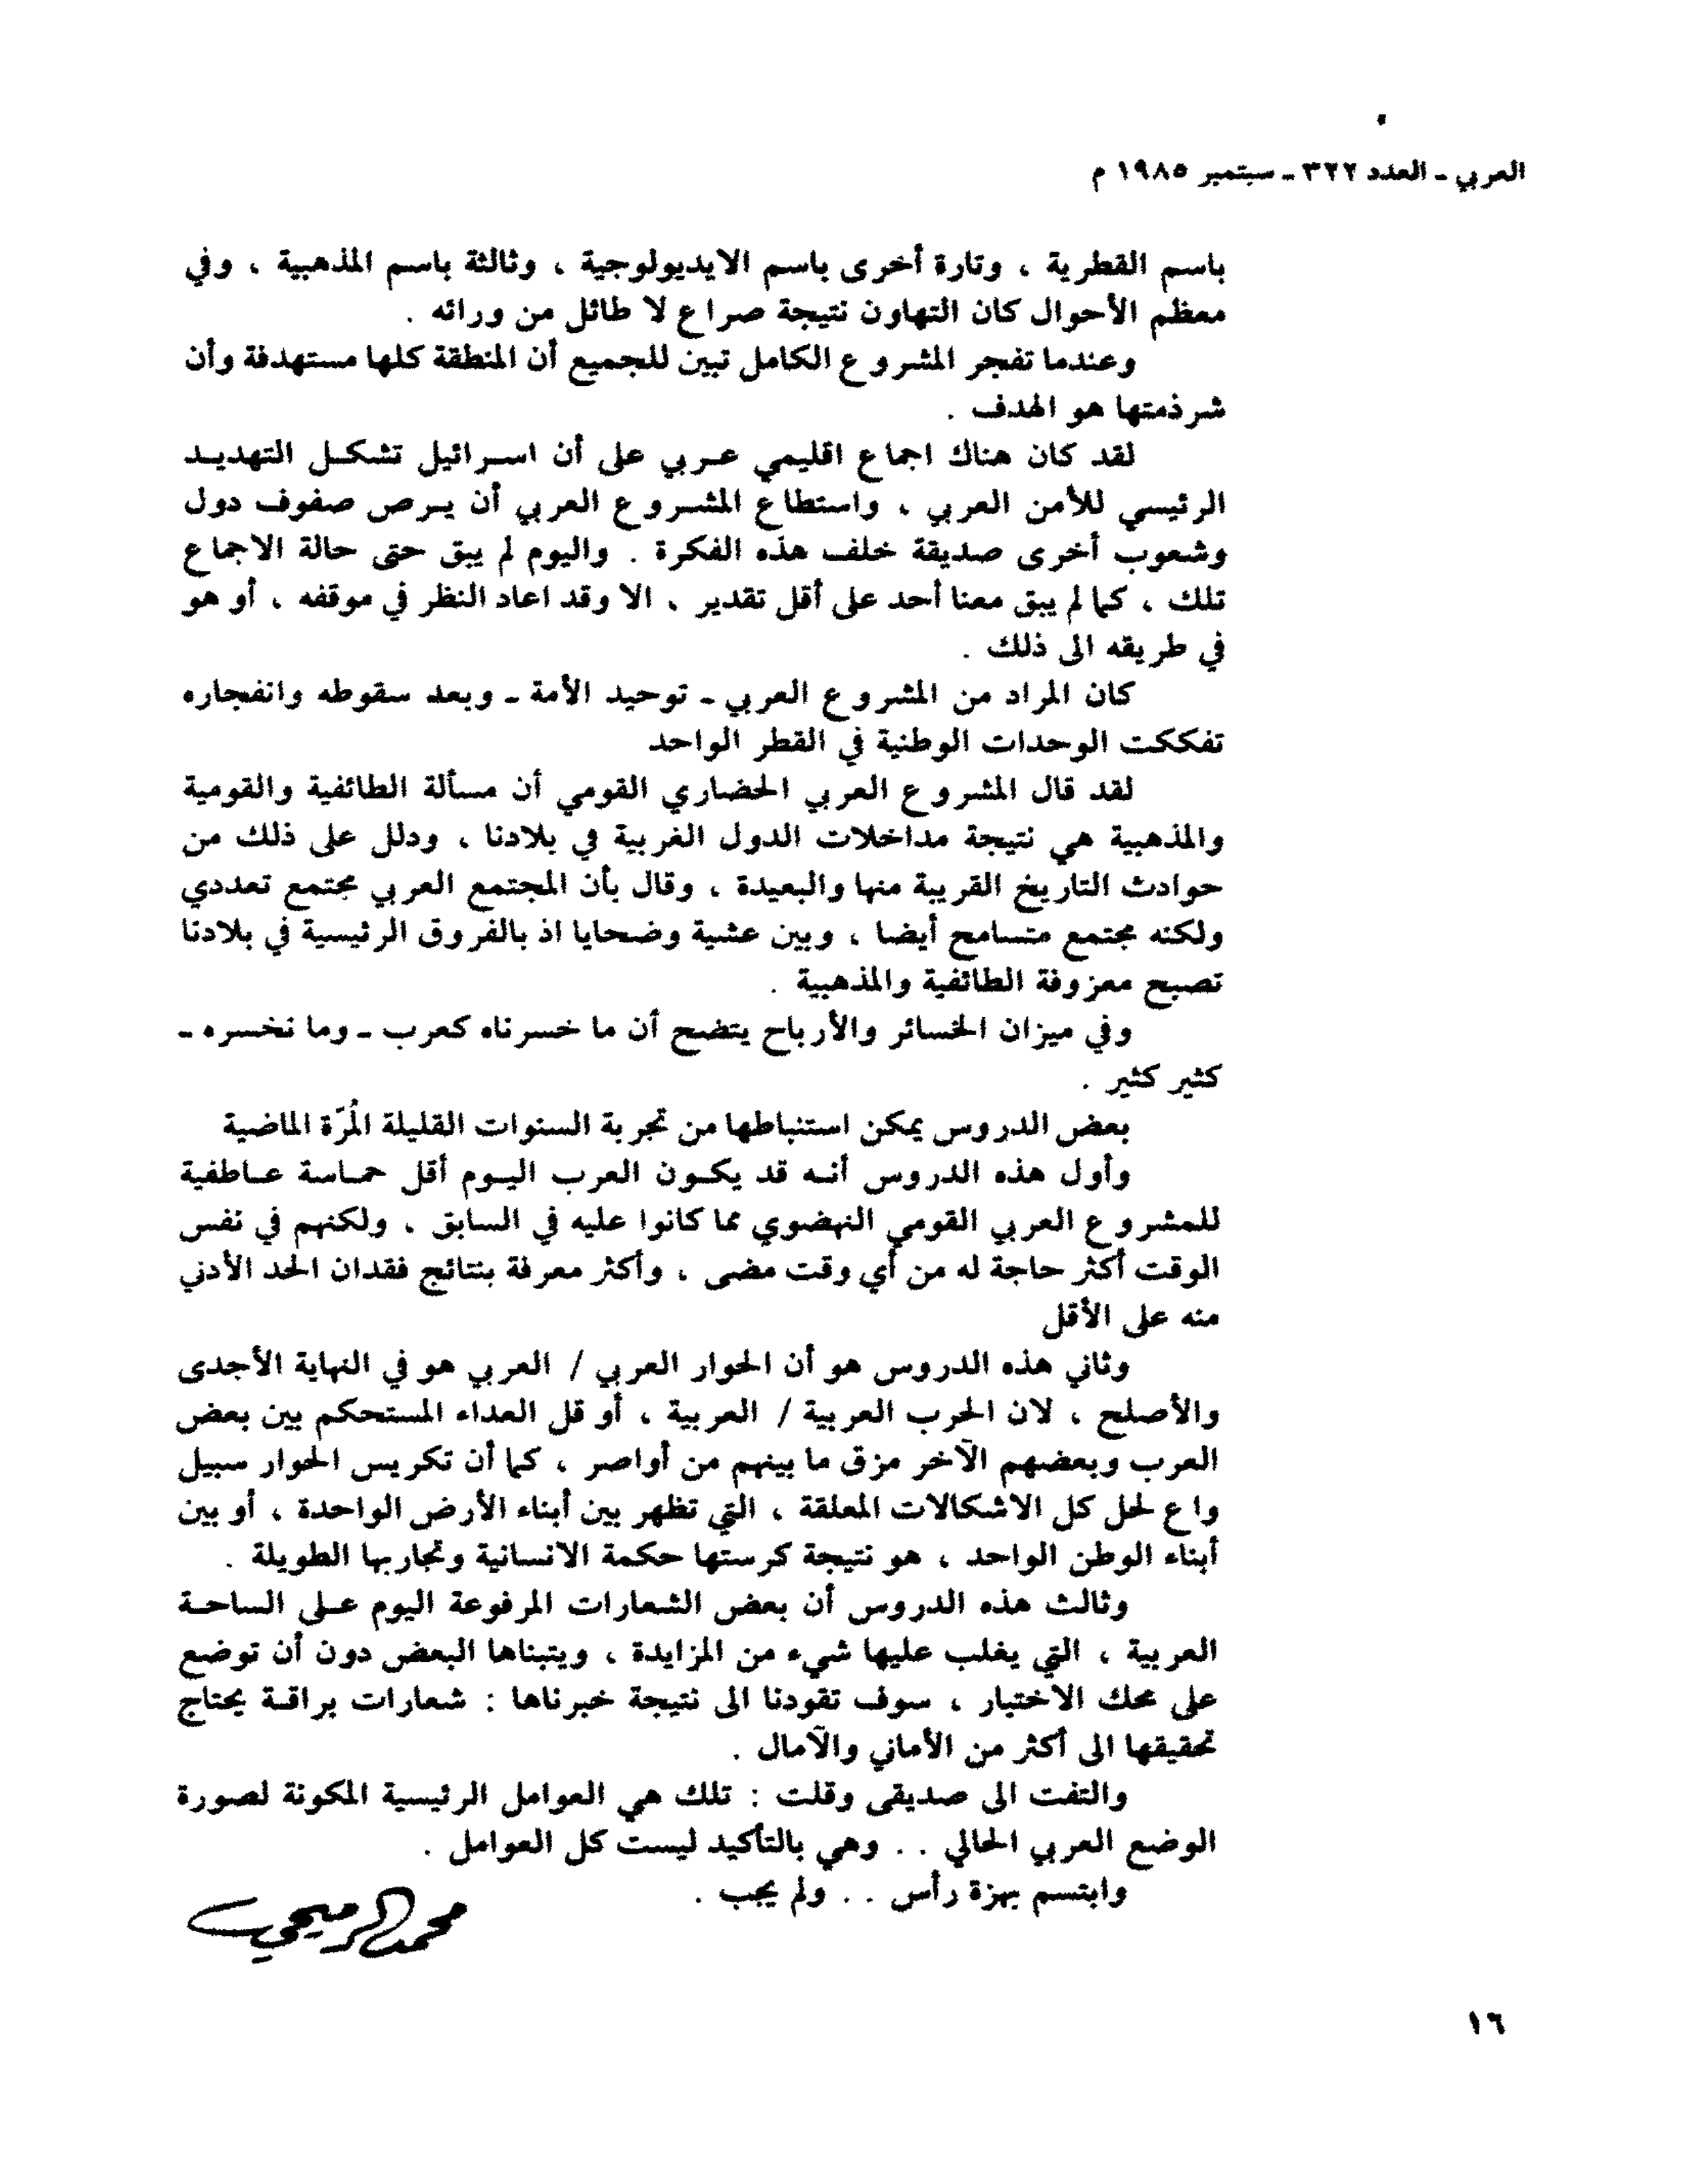 العربي ـ العدد ٣٢٢ ـ سبتمبر ١٩٨٥ م
باسم القطرية ، وتارة أخرى باسم الايديولوجية ، وثالثة باسم المذهبية ، وفي
معظم الأحوال كان التهاون نتيجة صراع لا طائل من ورائه .
وعندما تفجر المشروع الكامل تبين للجميع أن المنطقة كلها مستهدفة وأن
شرذمتها هو الهدف .
لقد كان هناك اجماع اقليمي عربي على أن اسرائيل تشكل التهديد
الرئيسي للأمن العربي ، واستطاع المشروع العربي أن يرص صفوف دول
وشعوب أخرى صديقة خلف هذه الفكرة . واليوم لم يبق حتى حالة الاجماع
تلك ، كما لم يبق معنا أحد على أقل تقدير ، الا وقد اعاد النظر في موقفه ، أو هو
في طريقه الى ذلك .
كان المراد من المشروع العربي ـ توحيد الأمة ـ وبعد سقوطه وانفجاره
تفككت الوحدات الوطنية في القطر الواحد
لقد قال المشروع العربي الحضاري القومي أن مسألة الطائفية والقومية
والمذهبية هي نتيجة مداخلات الدول الغربية في بلادنا ، ودلل على ذلك من
حوادث التاريخ القريبة منها والبعيدة ، وقال بأن المجتمع العربي مجتمع تعددي
ولكنه مجتمع متسامح أيضا ، وبين عشية وضحايا اذ بالفروق الرئيسية في بلادنا
تصبح معزوفة الطائفية والمذهبية .
وفي ميزان الخسائر والأرباح يتضح أن ما خسرناه كعرب ـ وما نخسره ـ
كثير كثير .
بعض الدروس يمكن استنباطها من تجربة السنوات القليلة المُرّة الماضية
وأول هذه الدروس أنه قد يكون العرب اليوم أقل حماسة عاطفية
للمشروع العربي القومي النهضوي مما كانوا عليه في السابق ، ولكنهم في نفس
الوقت أكثر حاجة له من أي وقت مضى ، وأكثر معرفة بنتائج فقدان الحد الأدني
منه على الأقل
وثاني هذه الدروس هو أن الحوار العربي / العربي هو في النهاية الأجدى
والأصلح ، لان الحرب العربية / العربية ، أو قل العداء المستحكم بين بعض
العرب وبعضهم الآخر مزق ما بينهم من أواصر ، كما أن تكريس الحوار سبيل
واع لحل كل الاشكالات المعلقة ، التي تظهر بين أبناء الأرض الواحدة ، أو بين
أبناء الوطن الواحد ، هو نتيجة كرستها حكمة الانسانية وتجاربها الطويلة .
وثالث هذه الدروس أن بعض الشعارات المرفوعة اليوم على الساحة
العربية ، التي يغلب عليها شيء من المزايدة ، ويتبناها البعض دون أن توضع
على محك الاختبار ، سوف تقودنا الى نتيجة خبرناها : شعارات براقة يحتاج
تحقيقها الى أكثر من الأماني والآمال .
والتفت الى صديقى وقلت : تلك هي العوامل الرئيسية المكونة لصورة
الوضع العربي الحالي . . وهي بالتأكيد ليست كل العوامل .
وابتسم بهزة رأس . . ولم يجب .
محمد الرميحي
١٦